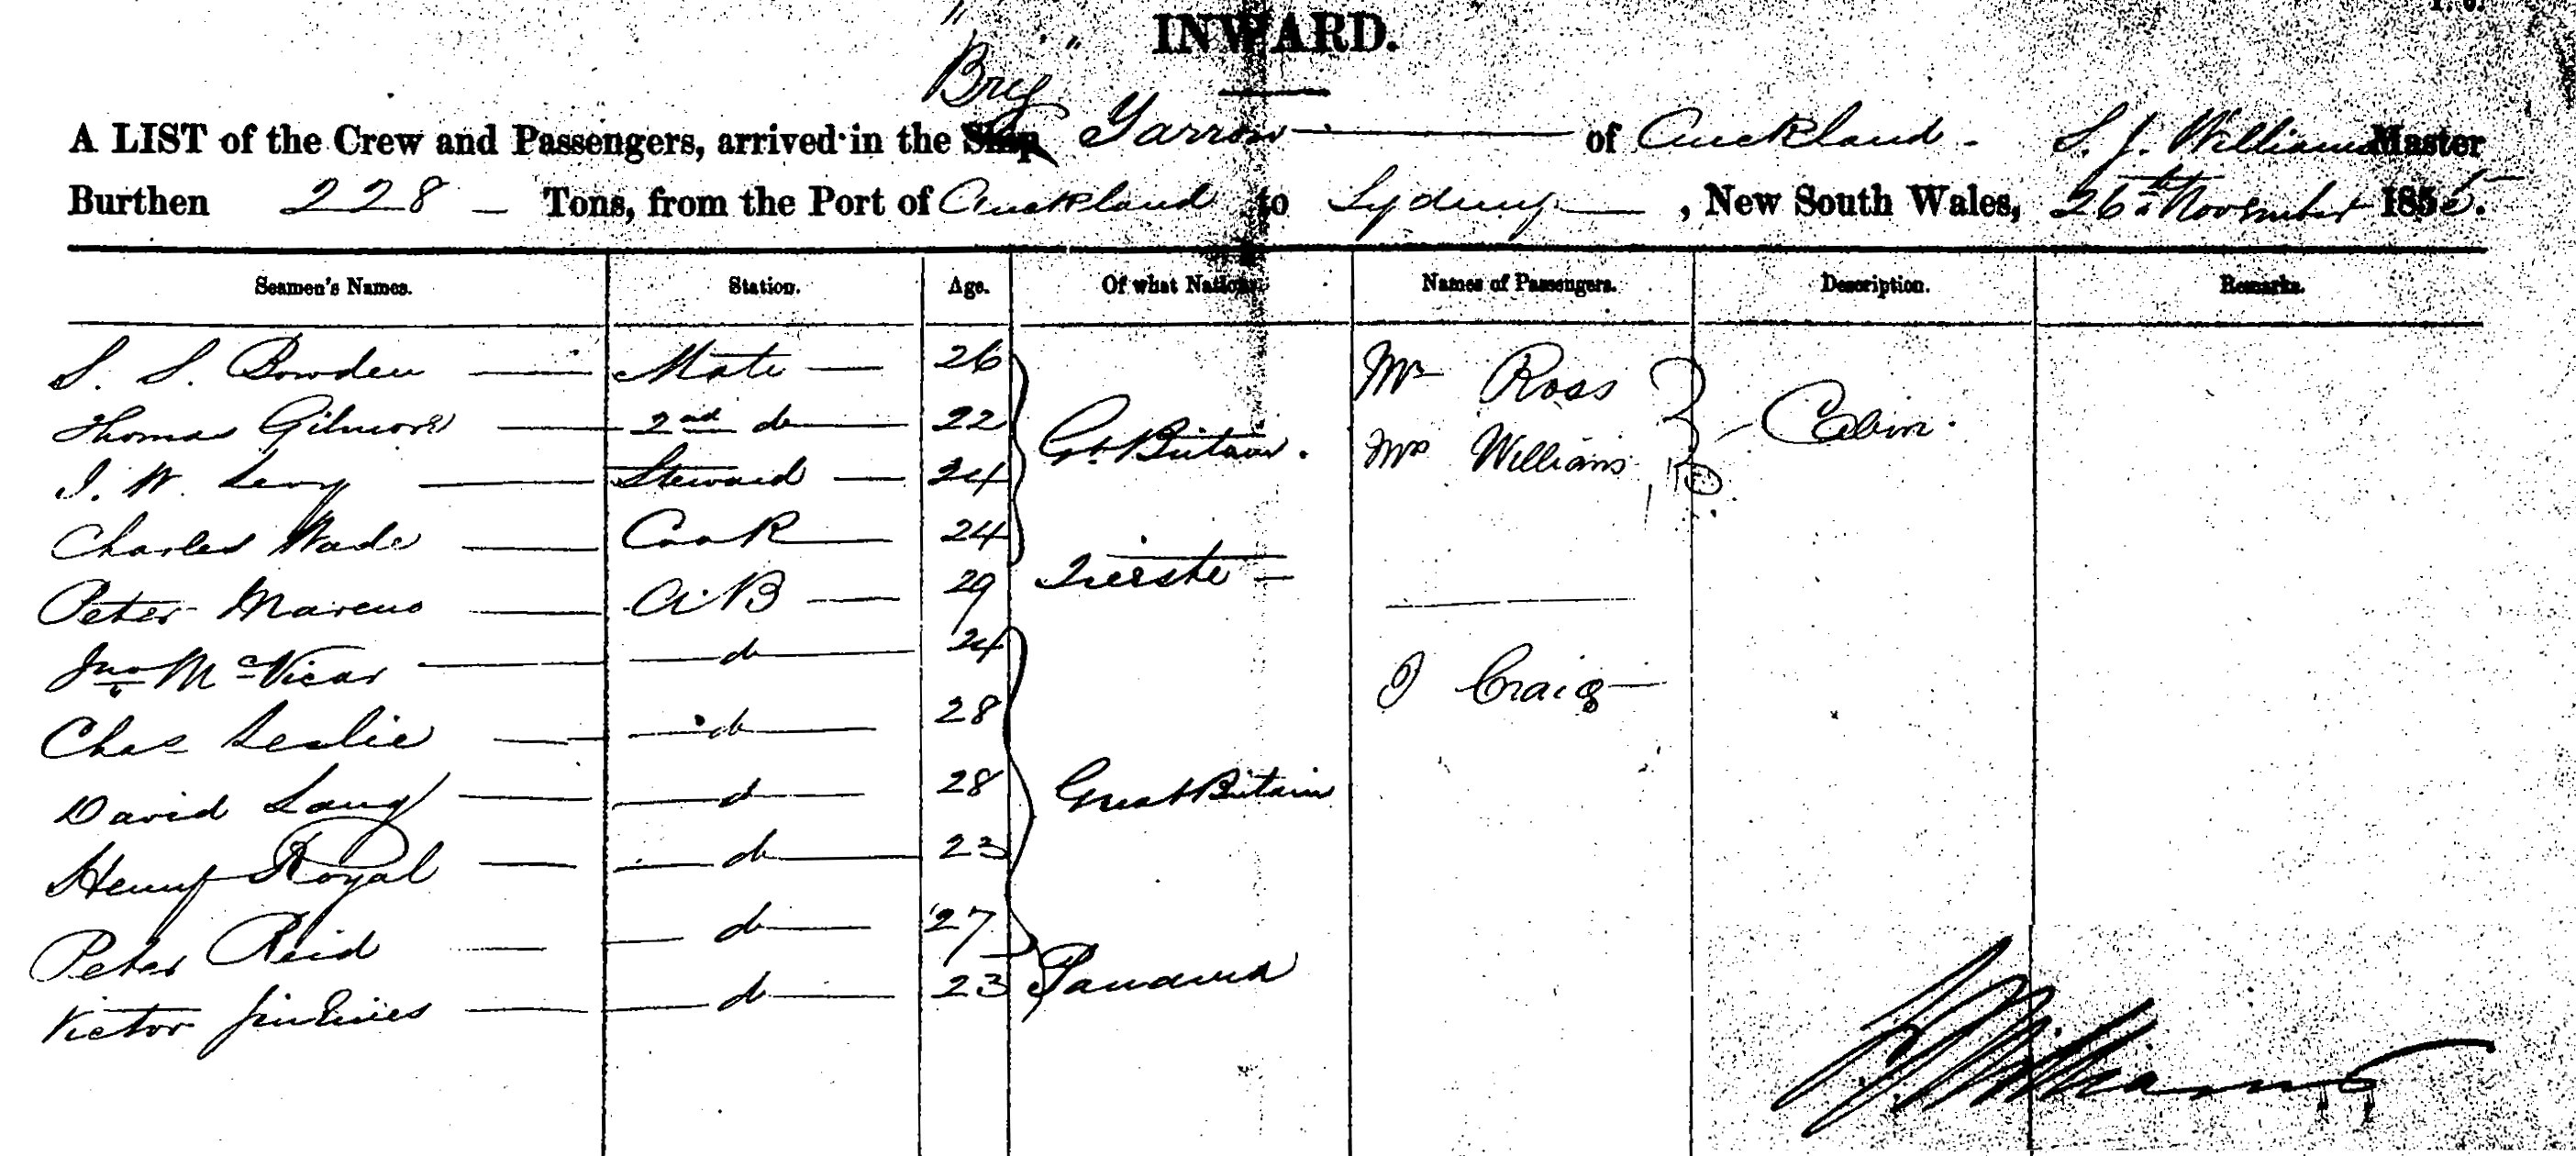 INWARD.
A LIST of the Crew and Passengers, arrived in the Ship Brig Yarrow of Auckland. S. J. Williams Master
Burthen 228 Tons, from the Port of Auckland to Sydney, New South Wales, 26th November 1855.
Seamen's Names. Station. Age. Of what Nation. Names of Passengers. Description. Remarks.
S. S. Bowden Mate 26 Mr Ross
Thomas Gilmore 2nd do 22 Gt Britain. Mrs Williams Cabin.
J. W. Levy Steward 24
Charles Wade Cook 24
Peter Marcus A.B 29 Trieste
Jno McVicar do 24 J Craig
Chas Leslie do 28
David Lang do 28 Great Britain
Henry Royal do 23
Peter Reid do 27
Victor do 23
S J Williams